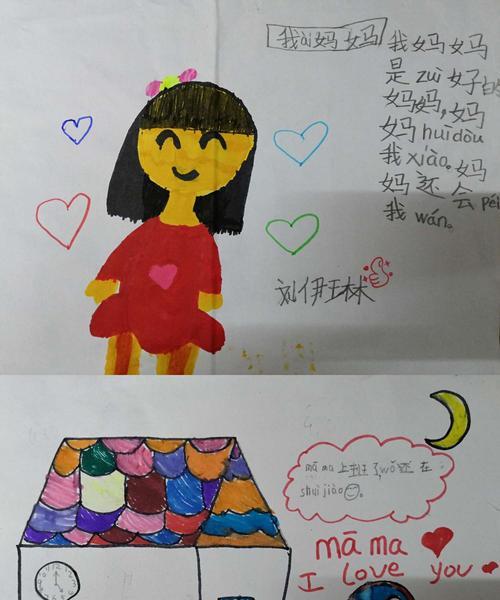 我ài妈妈
我妈妈
是zuì好的
妈妈,妈
妈huìdòu
我xiào。妈
妈还会péi
我wán。
刘伊玨林
mā ma 上班了,wǒ还在
shuì jiào。
mā ma
I Love you